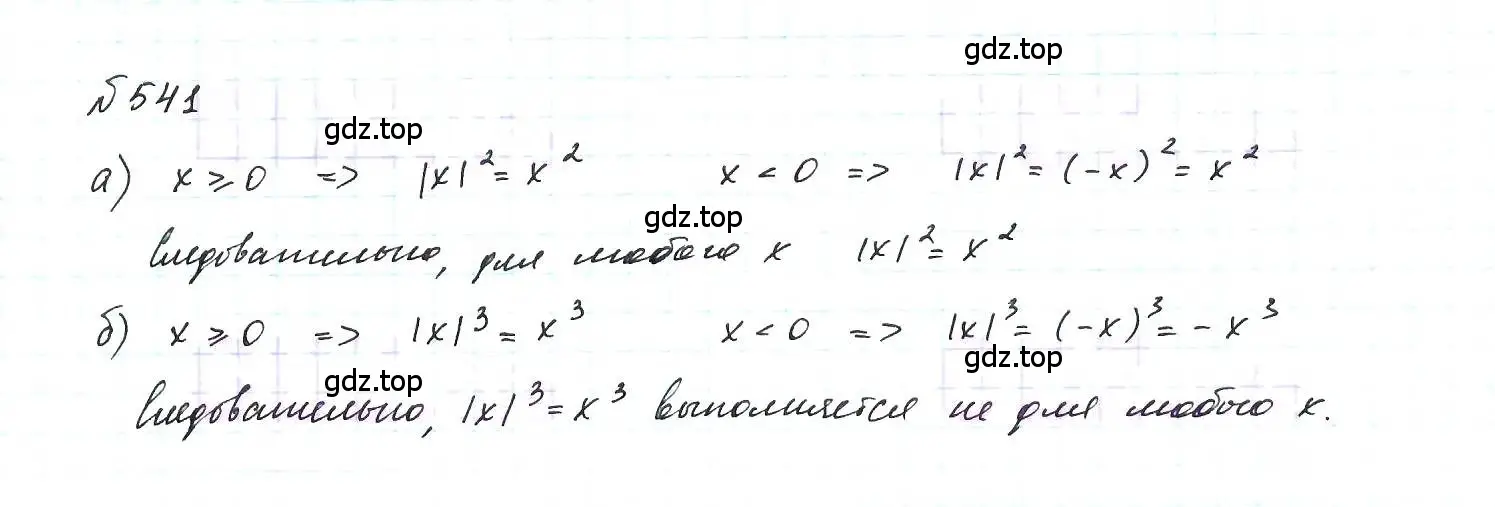 gdz.top
№541
gdz.top
а) x ⩾ 0 => |x|² = x² x < 0 => |x|² = (-x)² = x²
gdz.top
Следовательно, для любого x |x|² = x²
б) x ⩾ 0 => |x|³ = x³ x < 0 => |x|³ = (-x)³ = -x³
gdz.top
gdz.top
Следовательно, |x|³ = x³ выполняется не для любого x.